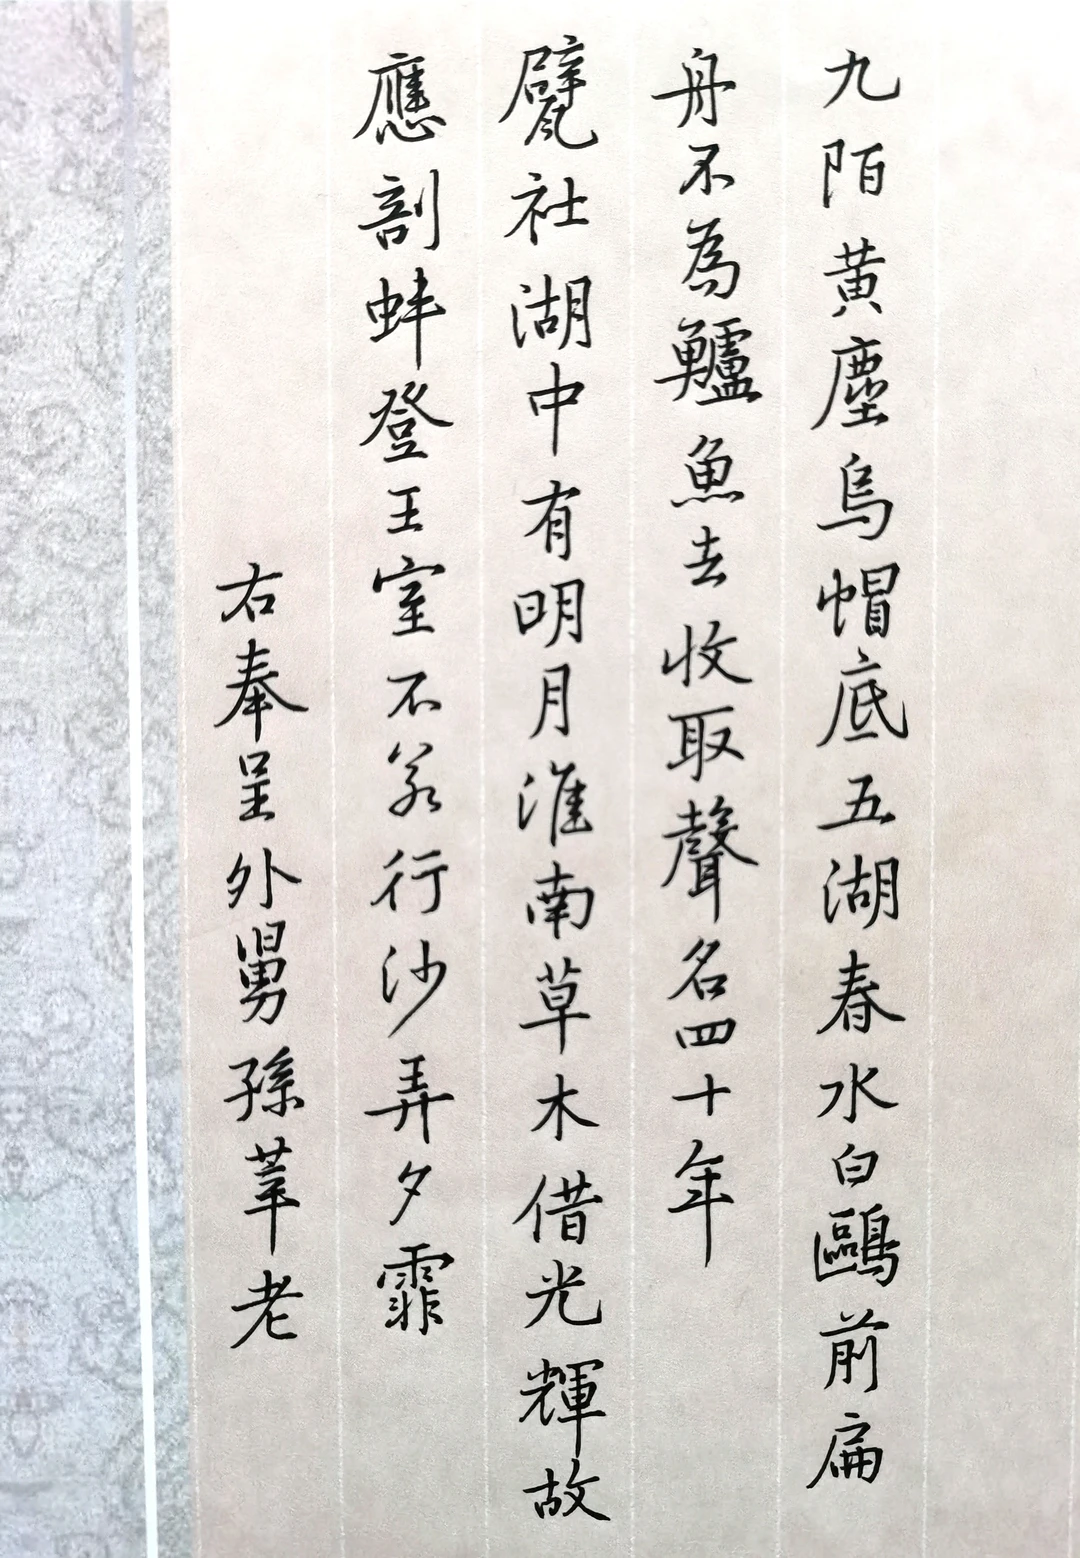 九陌黃塵烏帽底五湖春水白鷗前扁
舟不為鱸魚去收取聲名四十年
甓社湖中有明月淮南草木借光輝故
應剖蚌登王室不若行沙弄夕霏
右奉呈外舅孫莘老